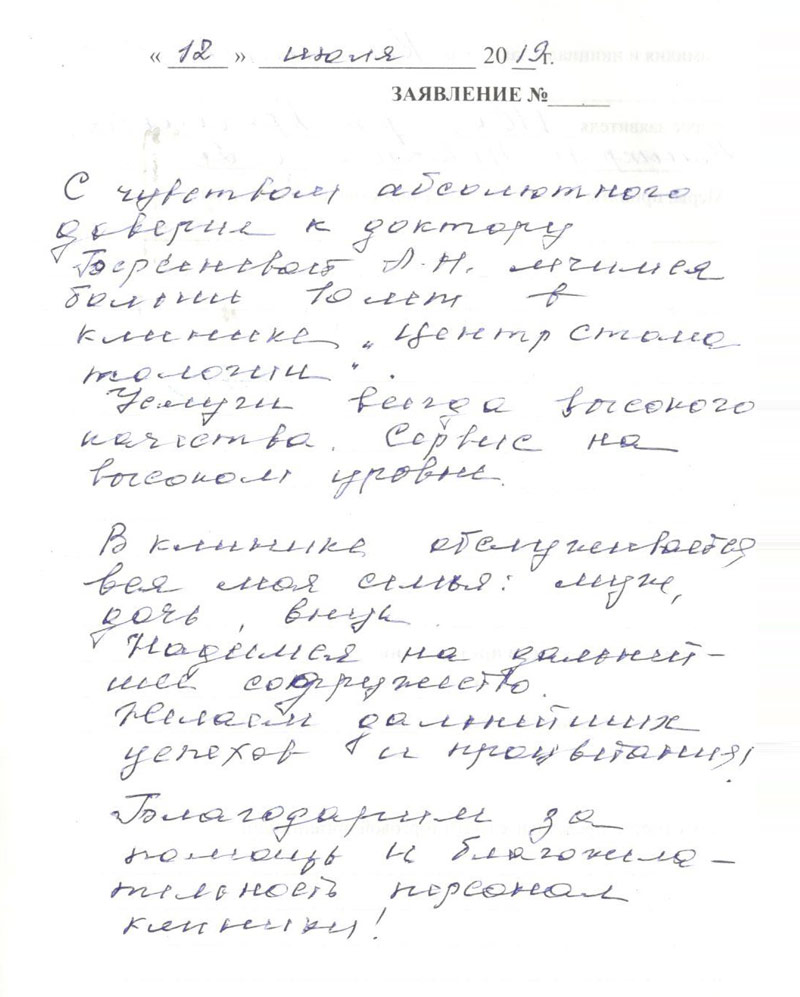 « 12 » июля 2019г.
ЗАЯВЛЕНИЕ №
С чувством абсолютного
доверия к доктору
Л.Н. лечимся
больше 10 лет в
клинике „Центр стома
тологии“.
Услуги всегда высокого
качества. Сервис на
высоком уровне.
В клинике обслуживается
вся моя семья: муж,
дочь, внук.
Надеемся на дальней-
шее содружество.
Желаем дальнейших
успехов и процветания!
Благодарим за
помощь и благожела-
тельность персонал
клиники!